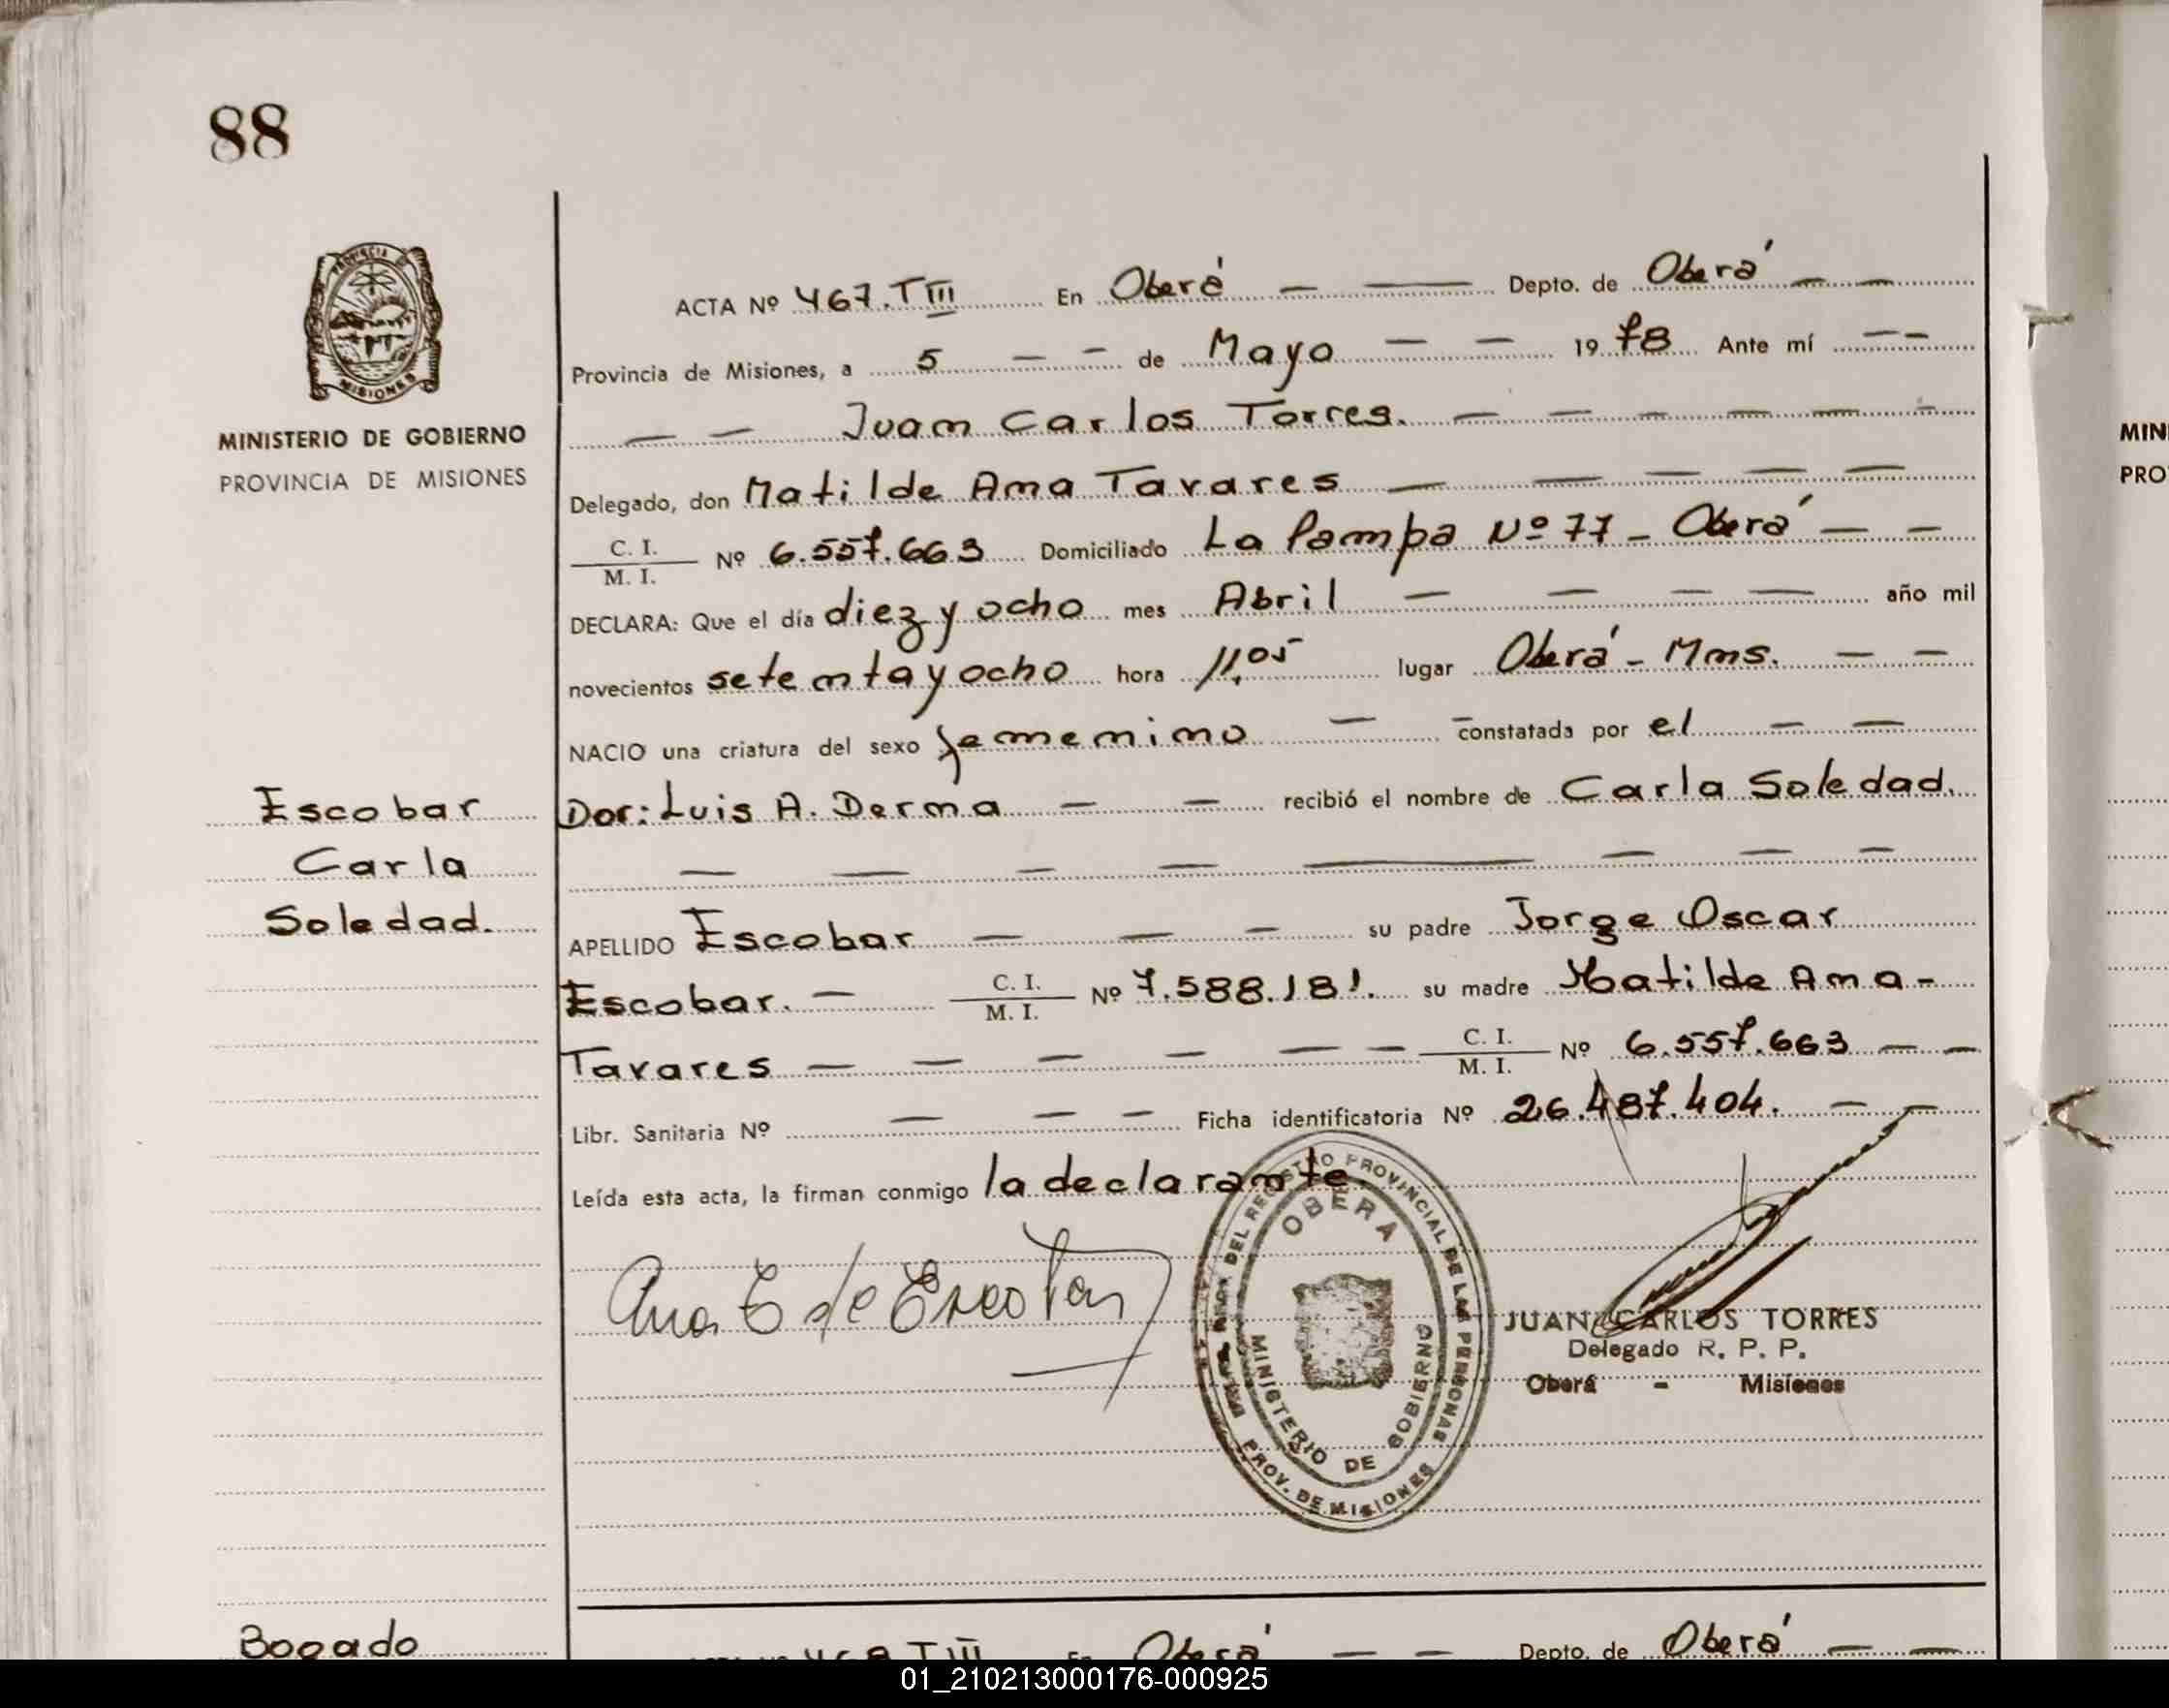 88
PROVINCIA DE
MISIONES
MINISTERIO DE GOBIERNO
PROVINCIA DE MISIONES
ACTA Nº 467. T III En Oberá Depto. de Oberá
Provincia de Misiones, a 5 de Mayo 1978 Ante mí
Juan Carlos Torres.
Delegado, don Matilde Ana Tavares
C. I.
M. I. Nº 6.557.663 Domiciliado La Pampa Nº 77 - Oberá
DECLARA: Que el día diez y ocho mes Abril año mil
novecientos setenta y ocho hora 11,05 lugar Oberá - Mnes.
NACIO una criatura del sexo femenino constatada por el
Dor: Luis A. Derna recibió el nombre de Carla Soledad.
APELLIDO Escobar su padre Jorge Oscar
Escobar. C. I.
M. I. Nº 7.588.181. su madre Matilde Ana
Tavares C. I.
M. I. Nº 6.557.663
Libr. Sanitaria Nº Ficha identificatoria Nº 26.487.404.
Leída esta acta, la firman conmigo la declarante
Escobar
Carla
Soledad.
Ana T de Escobar
DEL REGISTRO PROVINCIAL DE LAS PERSONAS
OBERA
MINISTERIO DE GOBIERNO
PROV. DE MISIONES
JUAN CARLOS TORRES
Delegado R. P. P.
Oberá - Misiones
Bogado
468 T III En Oberá Depto. de Oberá
MIN
PRO
01_210213000176-000925